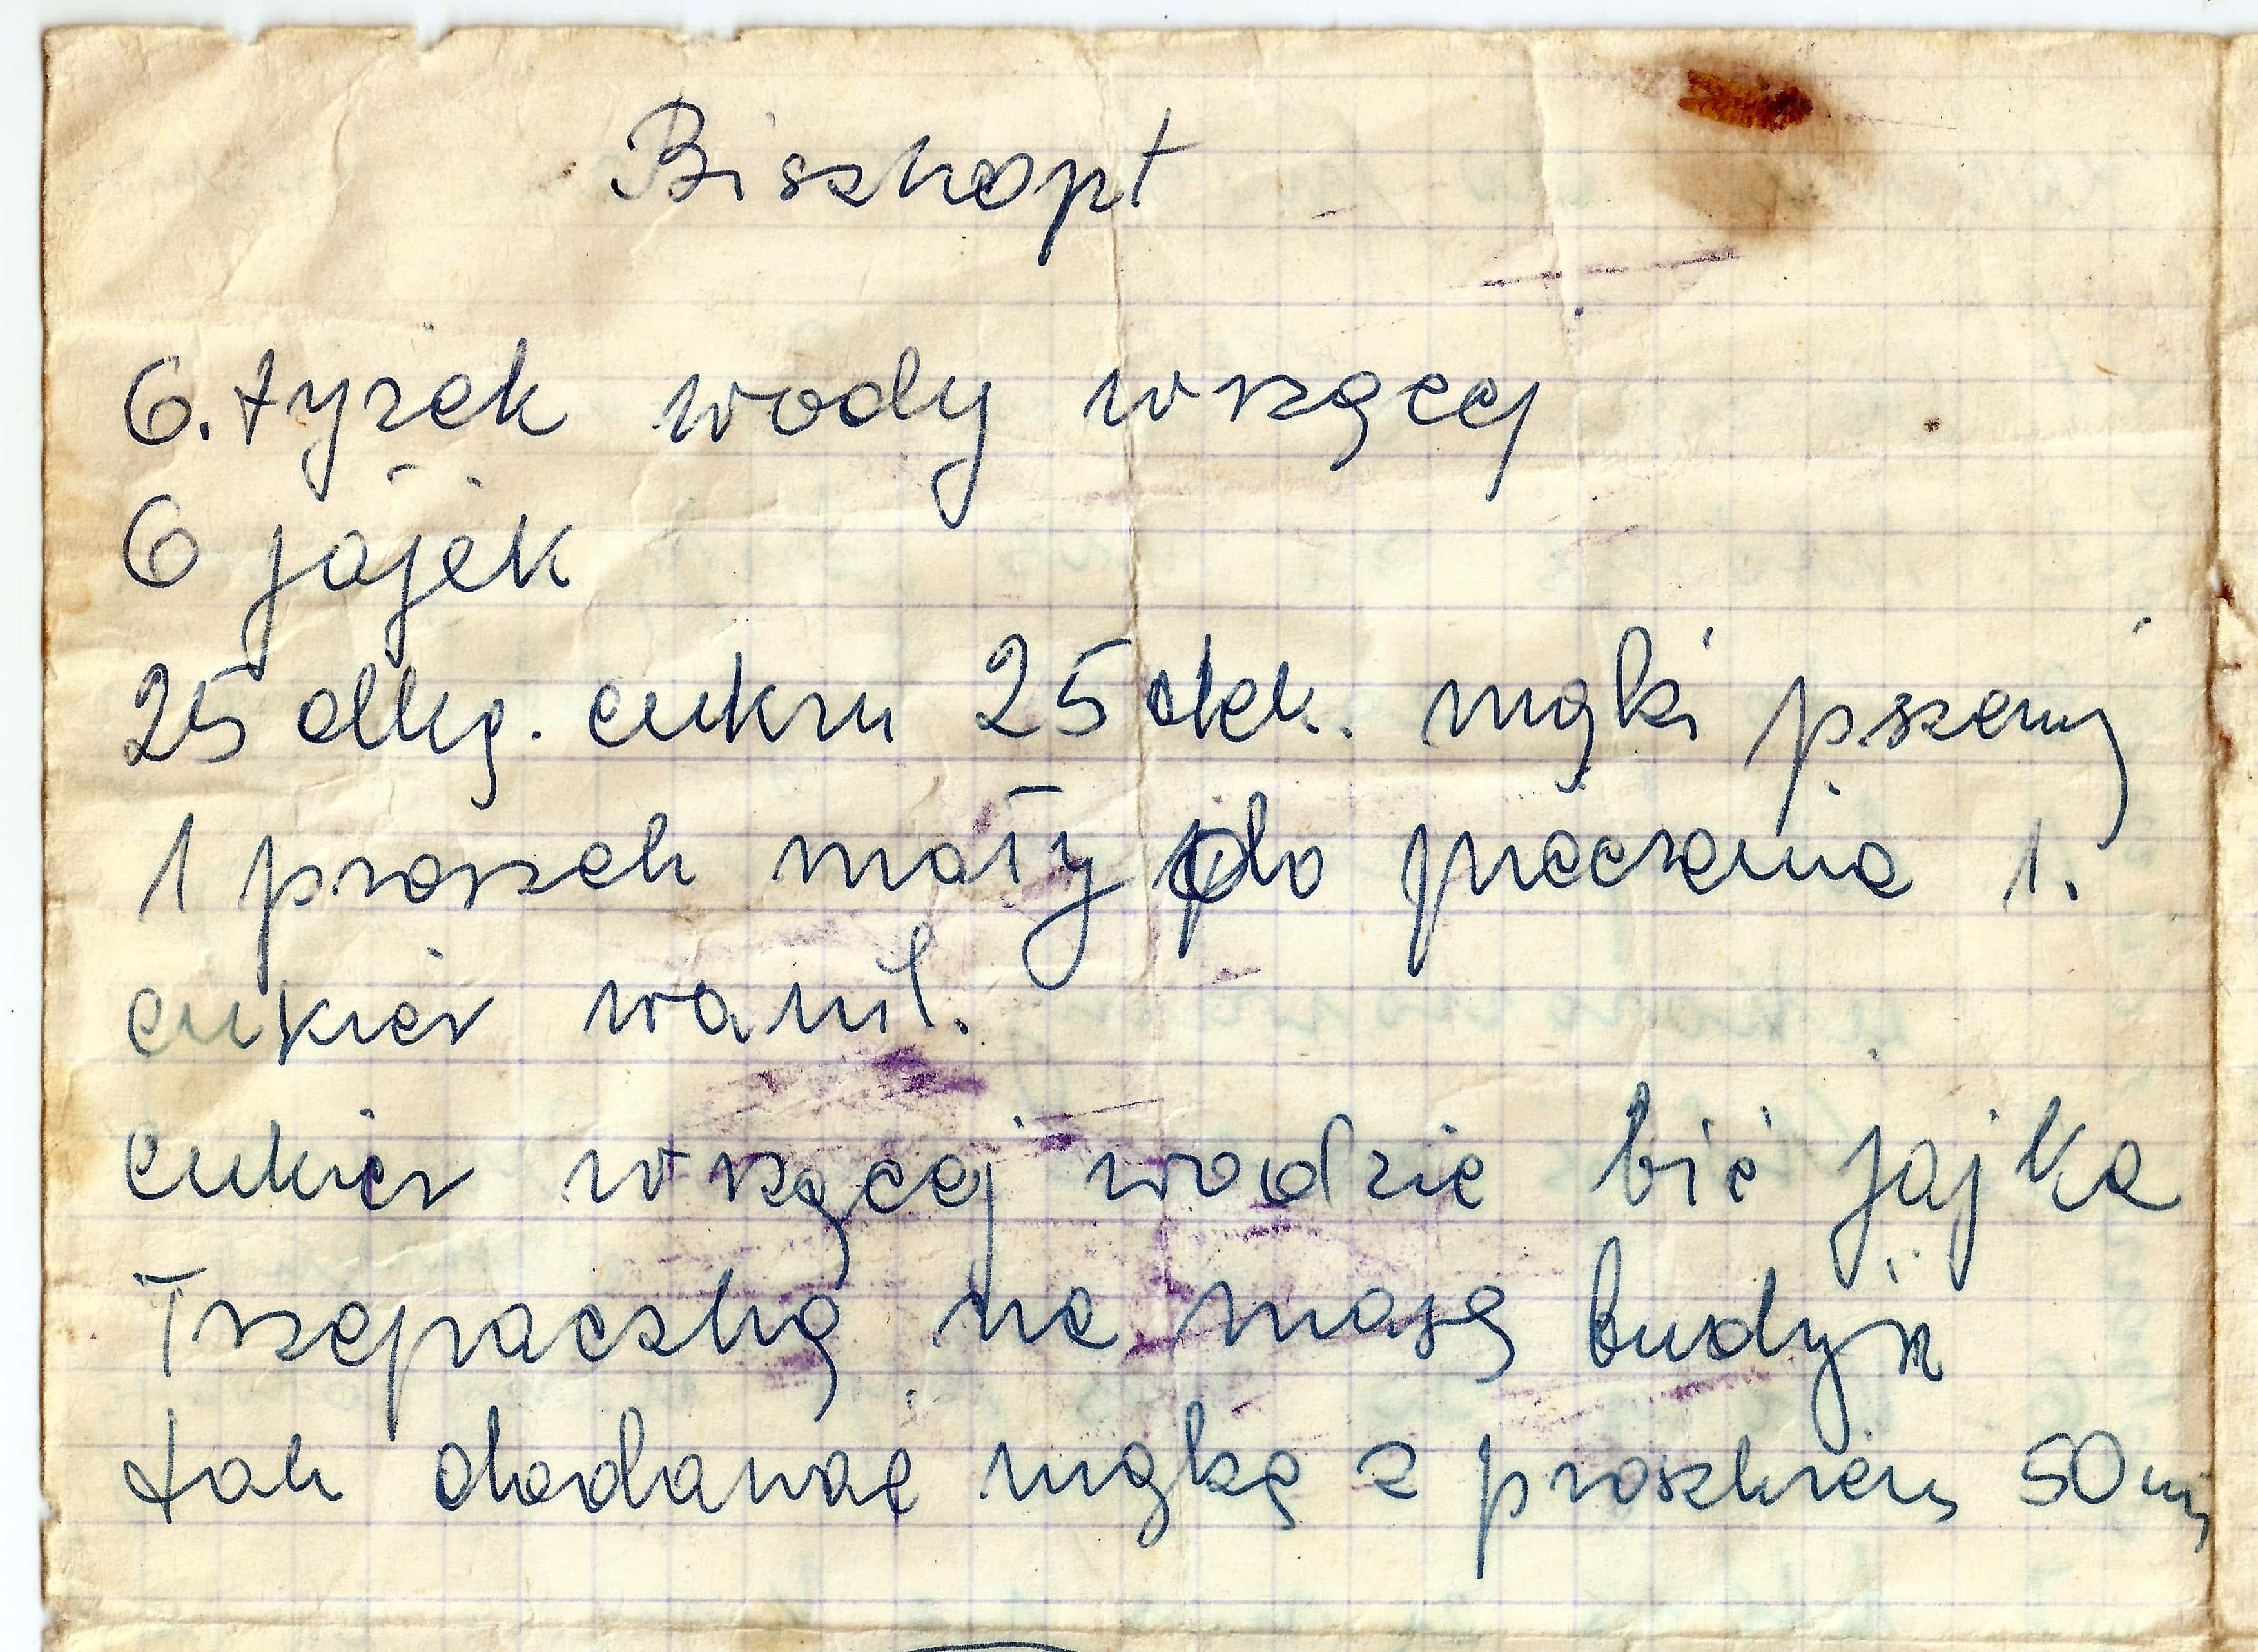 Biszkopt
6. łyżek wody wrzącej
6 jajek
25 dkg. cukru 25 dek. mąki pszenj
1 proszek mały do pieczenia 1.
cukier wanil.
cukier wrzącej wodzie bić jajka
Trzepaczką na masę budyń
tak dodawać mąkę z proszkiem 50 m